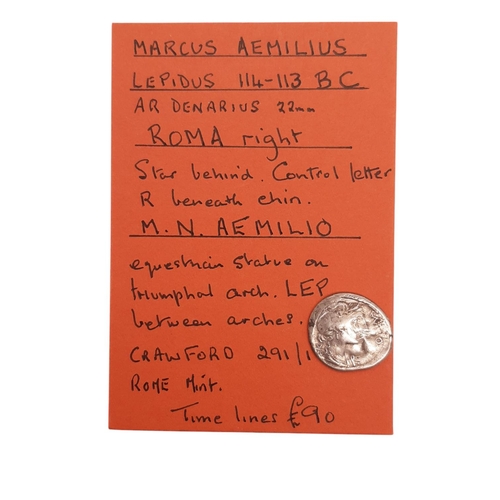 MARCUS AEMILIUS
LEPIDUS 114-113 BC
AR DENARIUS 22mm
ROMA right
Star behind. Control letter
R beneath chin.
M. N. AEMILIO
equestrian statue on
triumphal arch. LEP
between arches.
CRAWFORD 291/1
ROME Mint.
Time lines £90